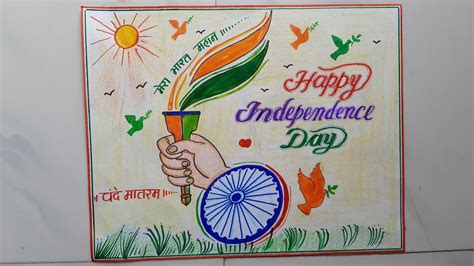 मेरा भारत महान
Happy
Independence
Day
वंदे मातरम